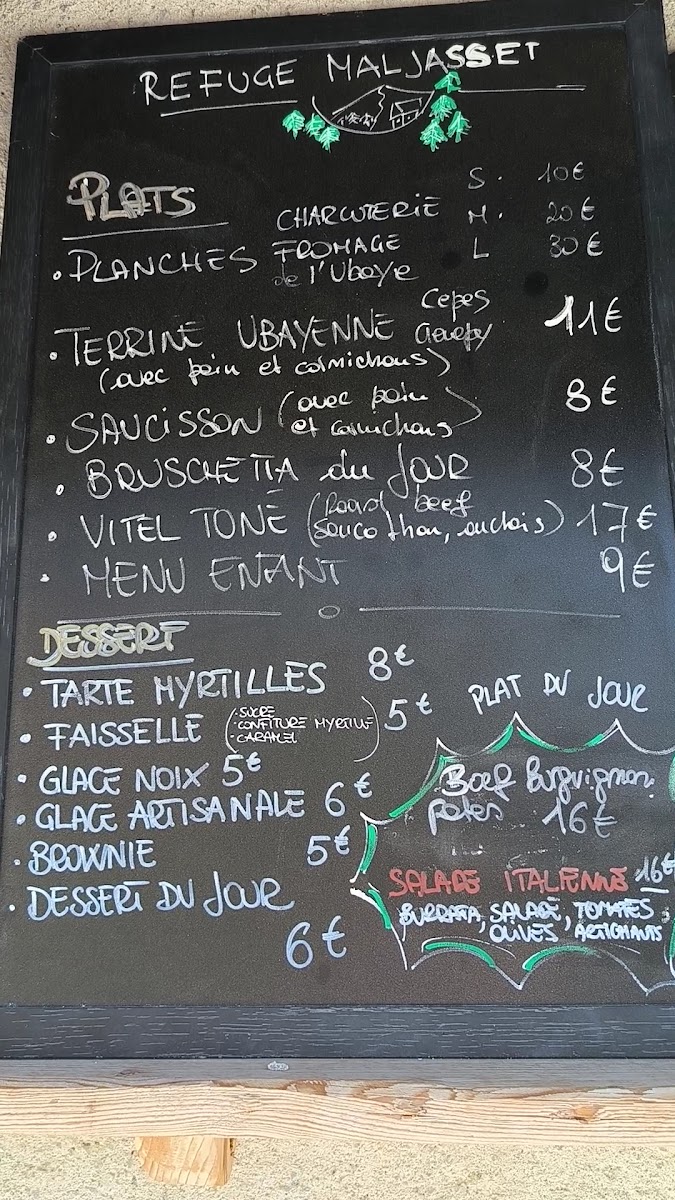 REFUGE MALJASSET
PLATS
S. 10€
CHARCUTERIE M. 20€
• PLANCHES FROMAGE L 30€
de l'Ubaye
Cepes
• TERRINE UBAYENNE Genepy 11€
(avec pain et cornichons)
• SAUCISSON (avec pain et cornichons) 8€
• BRUSCHETTA du JOUR 8€
• VITEL TONÉ (Roard beef
sauce thon, anchois) 17€
• MENU ENFANT 9€
DESSERT
• TARTE MYRTILLES 8€
• FAISSELLE (• SUCRE
• CONFITURE MYRTILLE
• CARAMEL) 5€
• GLACE NOIX 5€
• GLACE ARTISANALE 6€
• BROWNIE 5€
• DESSERT DU JOUR
6€
PLAT DU JOUR
Boef Burguignon.
pates 16€
SALADE ITALIENNE 16€
BURRATA, SALADE, TOMATES,
OLIVES, ARTICHAUTS